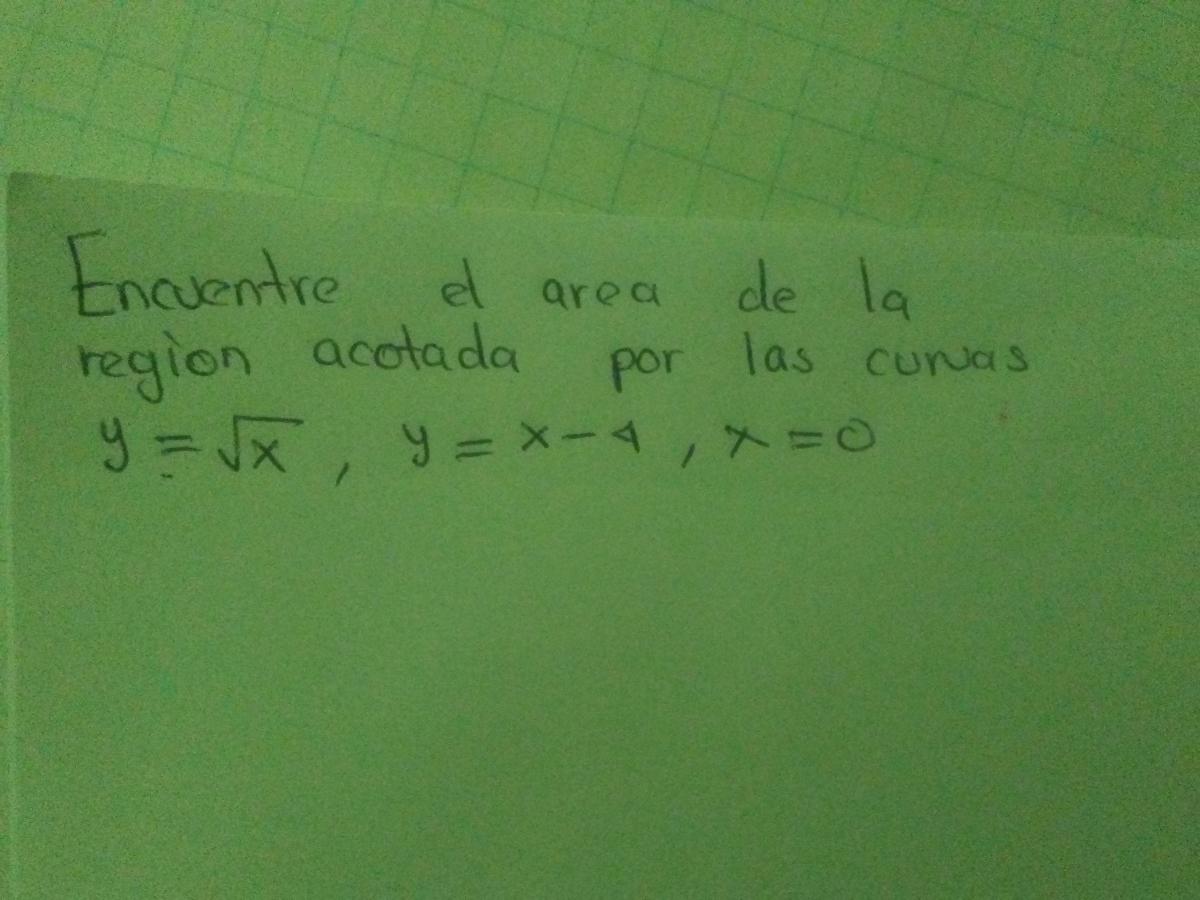 Encuentre el area de la
region acotada por las curvas
y = √x , y = x - 4 , x = 0